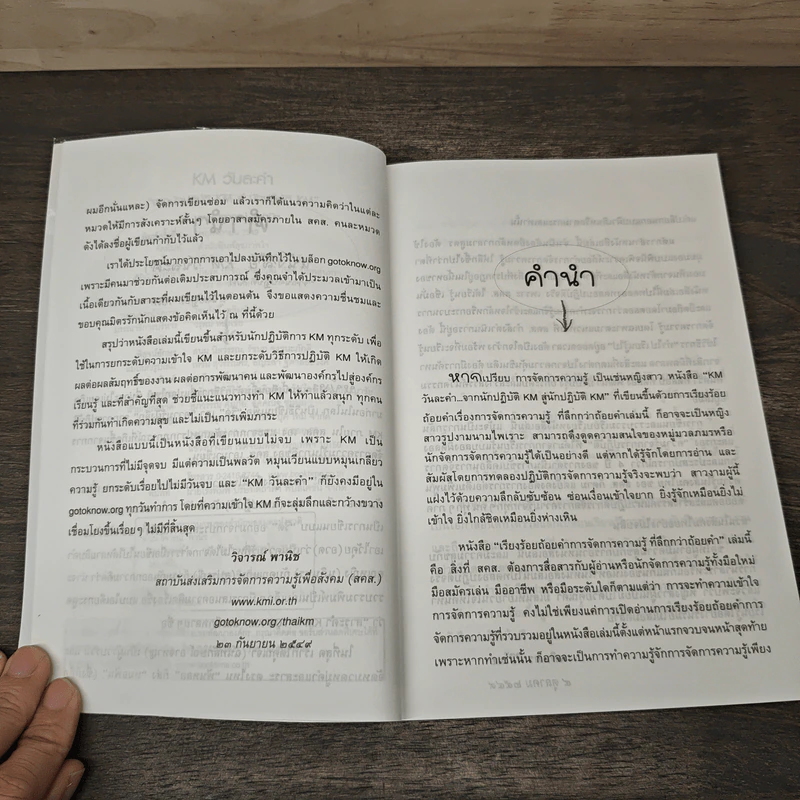 ผมอีกนั่นแหละ) จัดการเขียนซ่อม แล้วเราก็ได้แนวความคิดว่าในแต่ละ
หมวดให้มีการสังเคราะห์สั้นๆ โดยอาสาสมัครภายใน สคส. คนละหมวด
ดังได้ลงชื่อผู้เขียนกำกับไว้แล้ว
เราได้ประโยชน์มากจากการเอาไปลงบันทึกไว้ใน บล็อก gotoknow.org
เพราะมีคนมาช่วยกันต่อเติมประสบการณ์ ซึ่งคุณจ๋าได้ประมวลเข้ามาเป็น
เนื้อเดียวกันกับสาระที่ผมเขียนไว้ในตอนต้น จึงขอแสดงความชื่นชมและ
ขอบคุณมิตรรักนักแสดงข้อคิดเห็นไว้ ณ ที่นี้ด้วย
สรุปว่าหนังสือเล่มนี้เขียนขึ้นสำหรับนักปฏิบัติการ KM ทุกระดับ เพื่อ
ใช้ในการยกระดับความเข้าใจ KM และยกระดับวิธีการปฏิบัติ KM ให้เกิด
ผลต่อผลสัมฤทธิ์ของงาน ผลต่อการพัฒนาคน และพัฒนาองค์กรไปสู่องค์กร
เรียนรู้ และที่สำคัญที่สุด ช่วยชี้แนะแนวทางทำ KM ให้ทำแล้วสนุก ทุกคน
ที่ร่วมกันทำเกิดความสุข และไม่เป็นการเพิ่มภาระ
หนังสือแบบนี้เป็นหนังสือที่เขียนแบบไม่จบ เพราะ KM เป็น
กระบวนการที่ไม่มีจุดจบ มีแต่ความเป็นพลวัต หมุนเวียนแบบหมุนเกลียว
ความรู้ ยกระดับเรื่อยไปไม่มีวันจบ และ “KM วันละคำ” ก็ยังคงมีอยู่ใน
gotoknow.org ทุกวันทำการ โดยที่ความเข้าใจ KM ก็จะลุ่มลึกและกว้างขวาง
เชื่อมโยงขึ้นเรื่อยๆ ไม่มีที่สิ้นสุด
วิจารณ์ พานิช
สถาบันส่งเสริมการจัดการความรู้เพื่อสังคม (สคส.)
www.kmi.or.th
gotoknow.org/thaikm
๒๓ กันยายน ๒๕๔๙
คำนำ
หากเปรียบ การจัดการความรู้ เป็นเช่นหญิงสาว หนังสือ “KM
วันละคำ..จากนักปฏิบัติ KM สู่นักปฏิบัติ KM” ที่เขียนขึ้นด้วยการเรียงร้อย
ถ้อยคำเรื่องการจัดการความรู้ ที่ลึกกว่าถ้อยคำเล่มนี้ ก็อาจจะเป็นหญิง
สาวรูปงามนามไพเราะ สามารถดึงดูดความสนใจของหมู่มวลภมรหรือ
นักจัดการความรู้ได้เป็นอย่างดี แต่หากได้รู้จักโดยการอ่าน และ
สัมผัสโดยการทดลองปฏิบัติการจัดการความรู้จริงจะพบว่า สาวงามผู้นี้
แฝงไว้ด้วยความลึกลับซับซ้อน ซ่อนเงื่อนเข้าใจยาก ยิ่งรู้จักเหมือนยิ่งไม่
เข้าใจ ยิ่งใกล้ชิดเหมือนยิ่งห่างเหิน
หนังสือ “เรียงร้อยถ้อยคำการจัดการความรู้ ที่ลึกกว่าถ้อยคำ” เล่มนี้
คือ สิ่งที่ สคส. ต้องการสื่อสารกับผู้อ่านหรือนักจัดการความรู้ทั้งมือใหม่
มือสมัครเล่น มืออาชีพ หรือมือระดับใดก็ตามแต่ว่า การจะทำความเข้าใจ
การจัดการความรู้ คงไม่ใช่เพียงแค่การเปิดอ่านการเรียงร้อยถ้อยคำการ
จัดการความรู้ที่รวบรวมอยู่ในหนังสือเล่มนี้ตั้งแต่หน้าแรกจวบจนหน้าสุดท้าย
เพราะหากทำเช่นนั้น ก็อาจจะเป็นการทำความรู้จักการจัดการความรู้เพียง